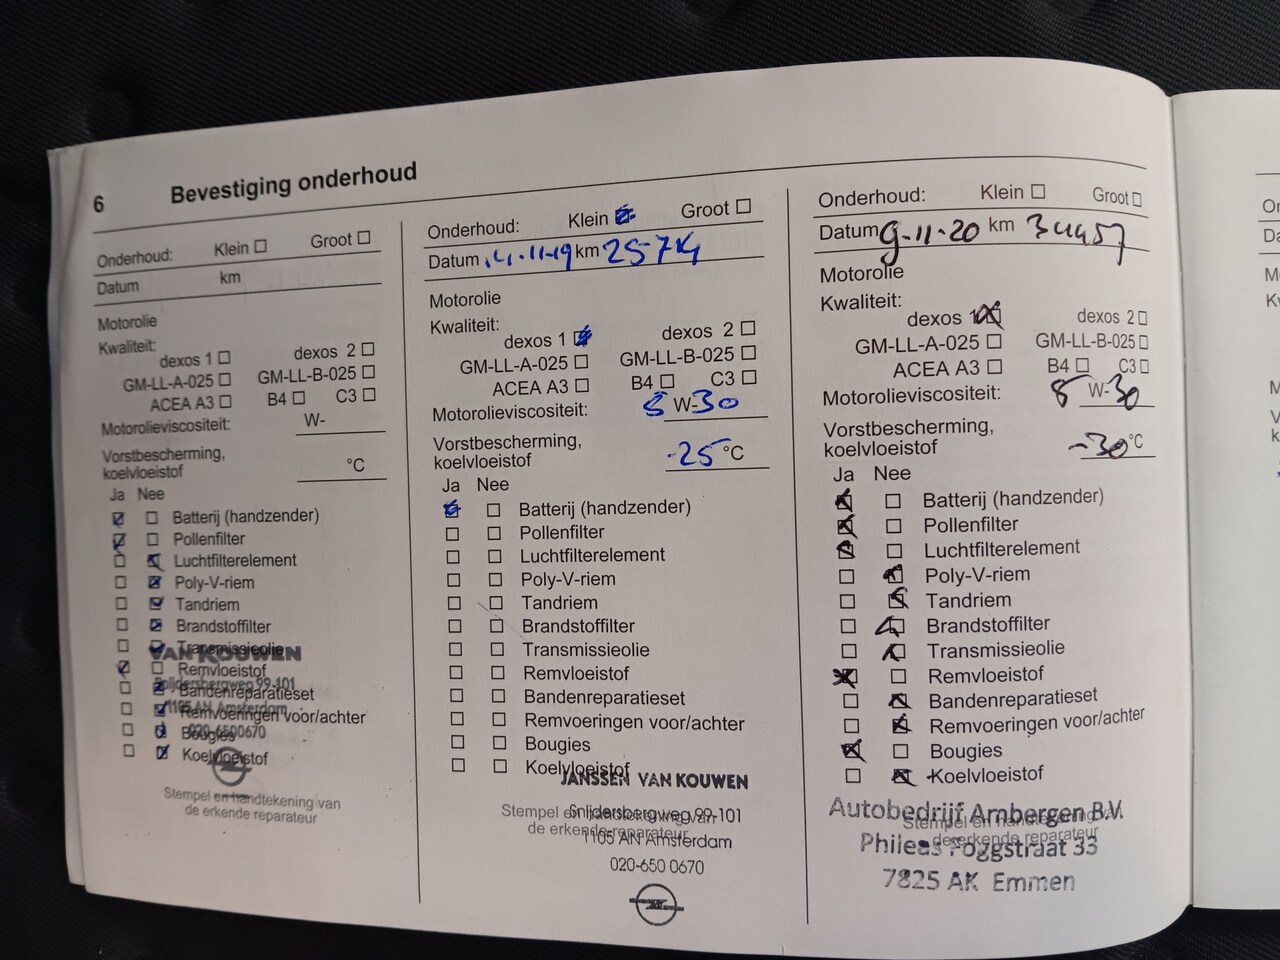 6 Bevestiging onderhoud
Onderhoud: Klein ☐ Groot ☐
Datum km
Motorolie
Kwaliteit:
dexos 1 ☐ dexos 2 ☐
GM-LL-A-025 ☐ GM-LL-B-025 ☐
ACEA A3 ☐ B4 ☐ C3 ☐
Motorolieviscositeit: W-
Vorstbescherming,
koelvloeistof °C
Ja Nee
☑ ☐ Batterij (handzender)
☑ ☐ Pollenfilter
☐ ☑ Luchtfilterelement
☐ ☑ Poly-V-riem
☐ ☑ Tandriem
☐ ☑ Brandstoffilter
☐ ☑ Transmissieolie
☑ ☐ Remvloeistof
☐ ☑ Bandenreparatieset
☐ ☑ Remvoeringen voor/achter
☐ ☑ Bougies
☐ ☑ Koelvloeistof
VAN KOUWEN
Snijdersbergweg 99-101
1105 AN Amsterdam
020-6500670
Stempel en handtekening van
de erkende reparateur
Onderhoud: Klein ☑ Groot ☐
Datum 14-11-19 km 25714
Motorolie
Kwaliteit:
dexos 1 ☑ dexos 2 ☐
GM-LL-A-025 ☐ GM-LL-B-025 ☐
ACEA A3 ☐ B4 ☐ C3 ☐
Motorolieviscositeit: 5 W-30
Vorstbescherming,
koelvloeistof -25 °C
Ja Nee
☑ ☐ Batterij (handzender)
☐ ☐ Pollenfilter
☐ ☐ Luchtfilterelement
☐ ☐ Poly-V-riem
☐ ☐ Tandriem
☐ ☐ Brandstoffilter
☐ ☐ Transmissieolie
☐ ☐ Remvloeistof
☐ ☐ Bandenreparatieset
☐ ☐ Remvoeringen voor/achter
☐ ☐ Bougies
☐ ☐ Koelvloeistof
JANSSEN VAN KOUWEN
Snijdersbergweg 99-101
1105 AN Amsterdam
020-650 0670
Stempel en handtekening van
de erkende reparateur
Onderhoud: Klein ☐ Groot ☐
Datum 9-11-20 km 34457
Motorolie
Kwaliteit:
dexos 1 ☒ dexos 2 ☐
GM-LL-A-025 ☐ GM-LL-B-025 ☐
ACEA A3 ☐ B4 ☐ C3 ☐
Motorolieviscositeit: 5 W-30
Vorstbescherming,
koelvloeistof -30 °C
Ja Nee
☒ ☐ Batterij (handzender)
☒ ☐ Pollenfilter
☒ ☐ Luchtfilterelement
☐ ☒ Poly-V-riem
☐ ☒ Tandriem
☐ ☒ Brandstoffilter
☐ ☒ Transmissieolie
☒ ☐ Remvloeistof
☐ ☒ Bandenreparatieset
☐ ☒ Remvoeringen voor/achter
☒ ☐ Bougies
☐ ☒ Koelvloeistof
Autobedrijf Arnbergen B.V.
Phileas Foggstraat 33
7825 AK Emmen
Stempel en handtekening van
de erkende reparateur